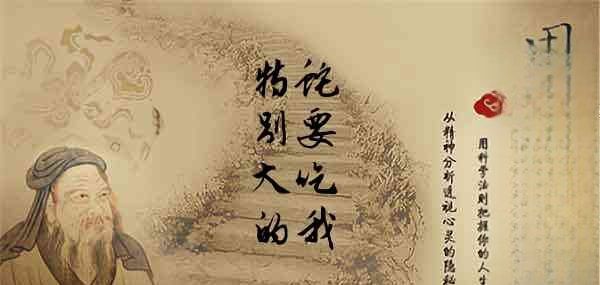 用科学法则把握你的人生
从精神分析透视心灵的隐秘
诧要吃我
特别大的